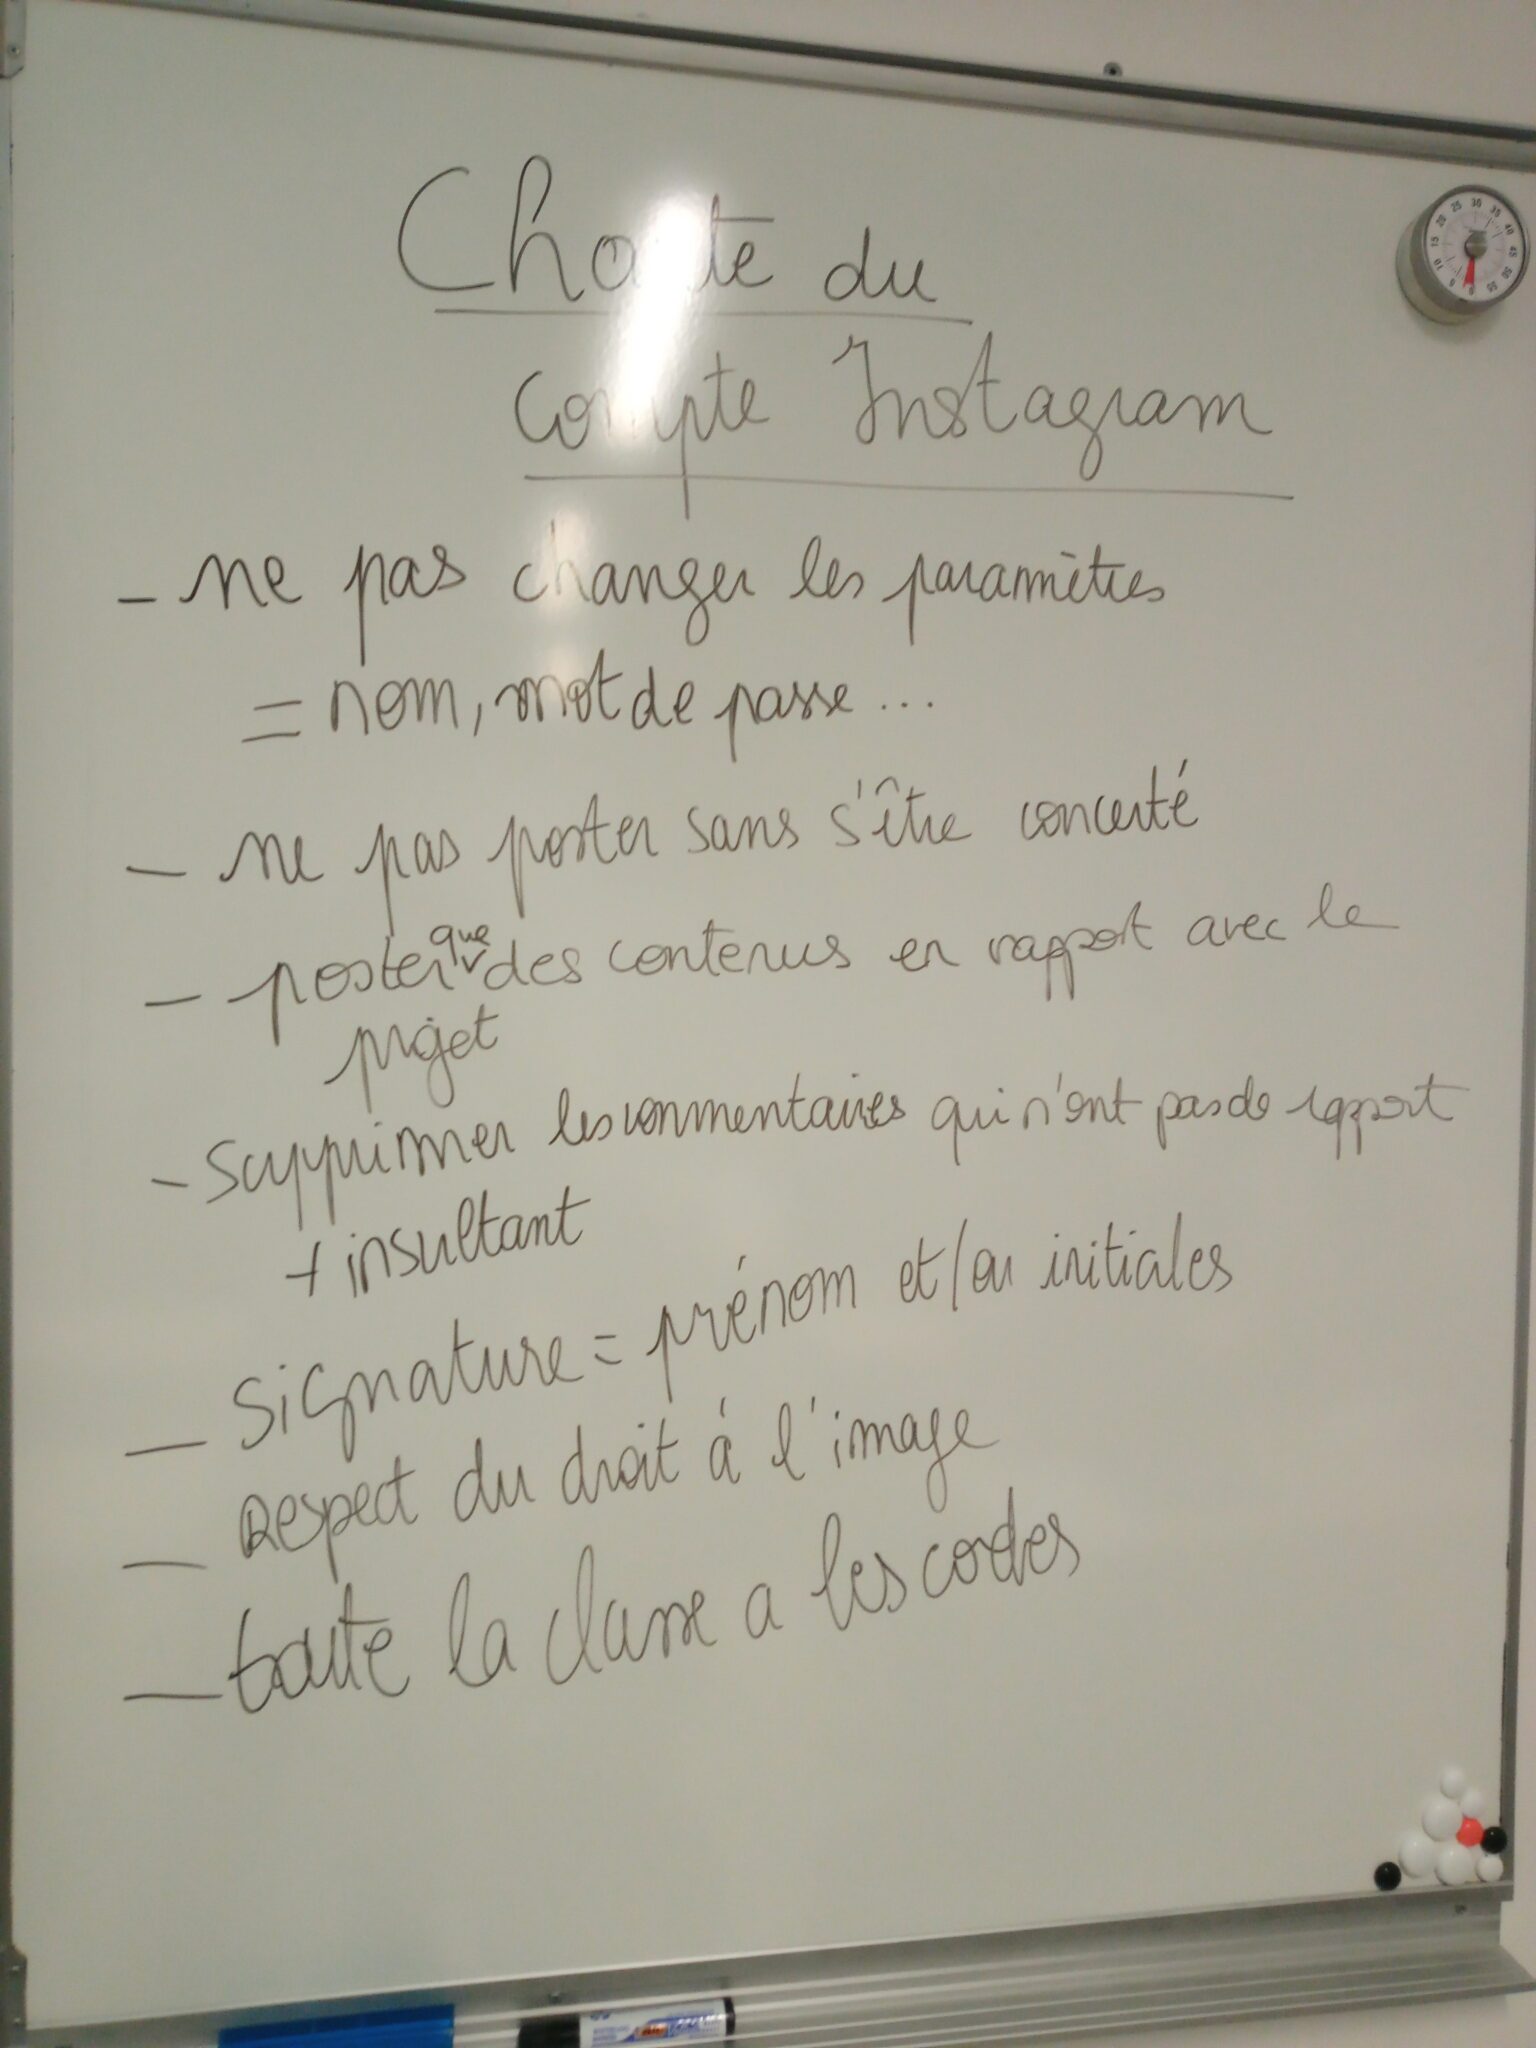 Charte du
compte Instagram
- ne pas changer les paramètres
= nom, mot de passe ...
- ne pas poster sans s'être concerté
- poster que des contenus en rapport avec le
projet
- supprimer les commentaires qui n'ont pas de rapport
+ insultant
- signature = prénom et/ou initiales
- Respect du droit à l'image
- toute la classe a les codes